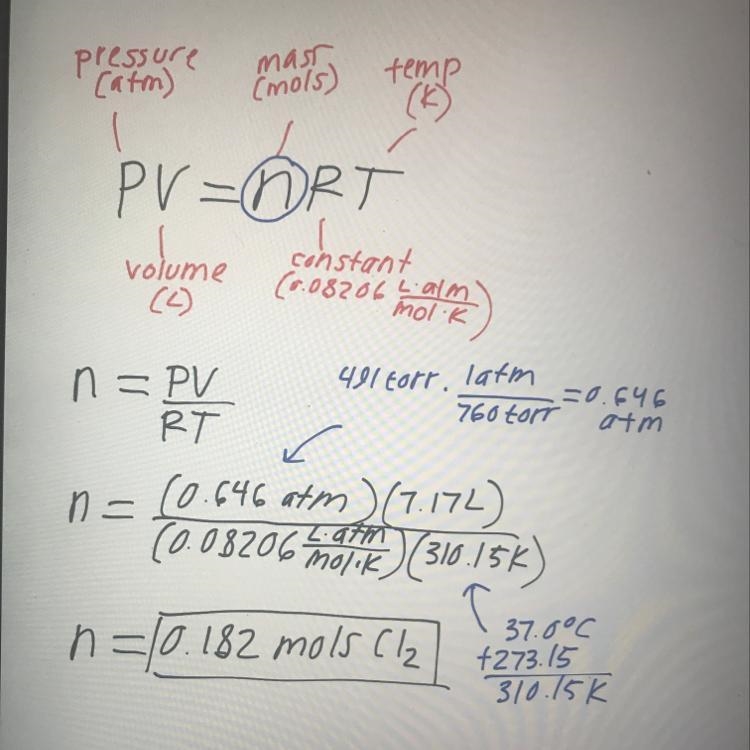 pressure
(atm)
mass
(mols)
temp
(K)
PV = nRT
volume
(L)
constant
(0.08206 L·atm
mol·K)
n = PV
RT
491 torr · 1atm
760 torr = 0.646
atm
n = (0.646 atm)(7.17L)
(0.08206 L·atm
mol·K)(310.15K)
37.0°C
+273.15
310.15K
n = 0.182 mols Cl2